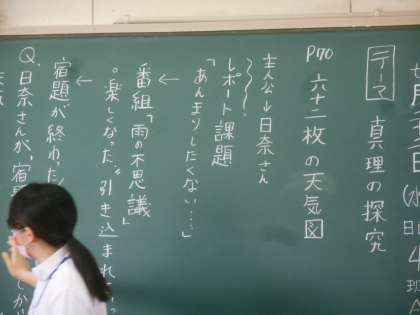 テーマ 真理の探究
P70 六十二枚の天気図
主人公↓日奈さん
レポート課題
「あんまりしたくない…」
↓
番組「雨の不思議」
。楽しくなった。引き込まれ
↓
宿題が終わった
Q.日奈さんが、宿